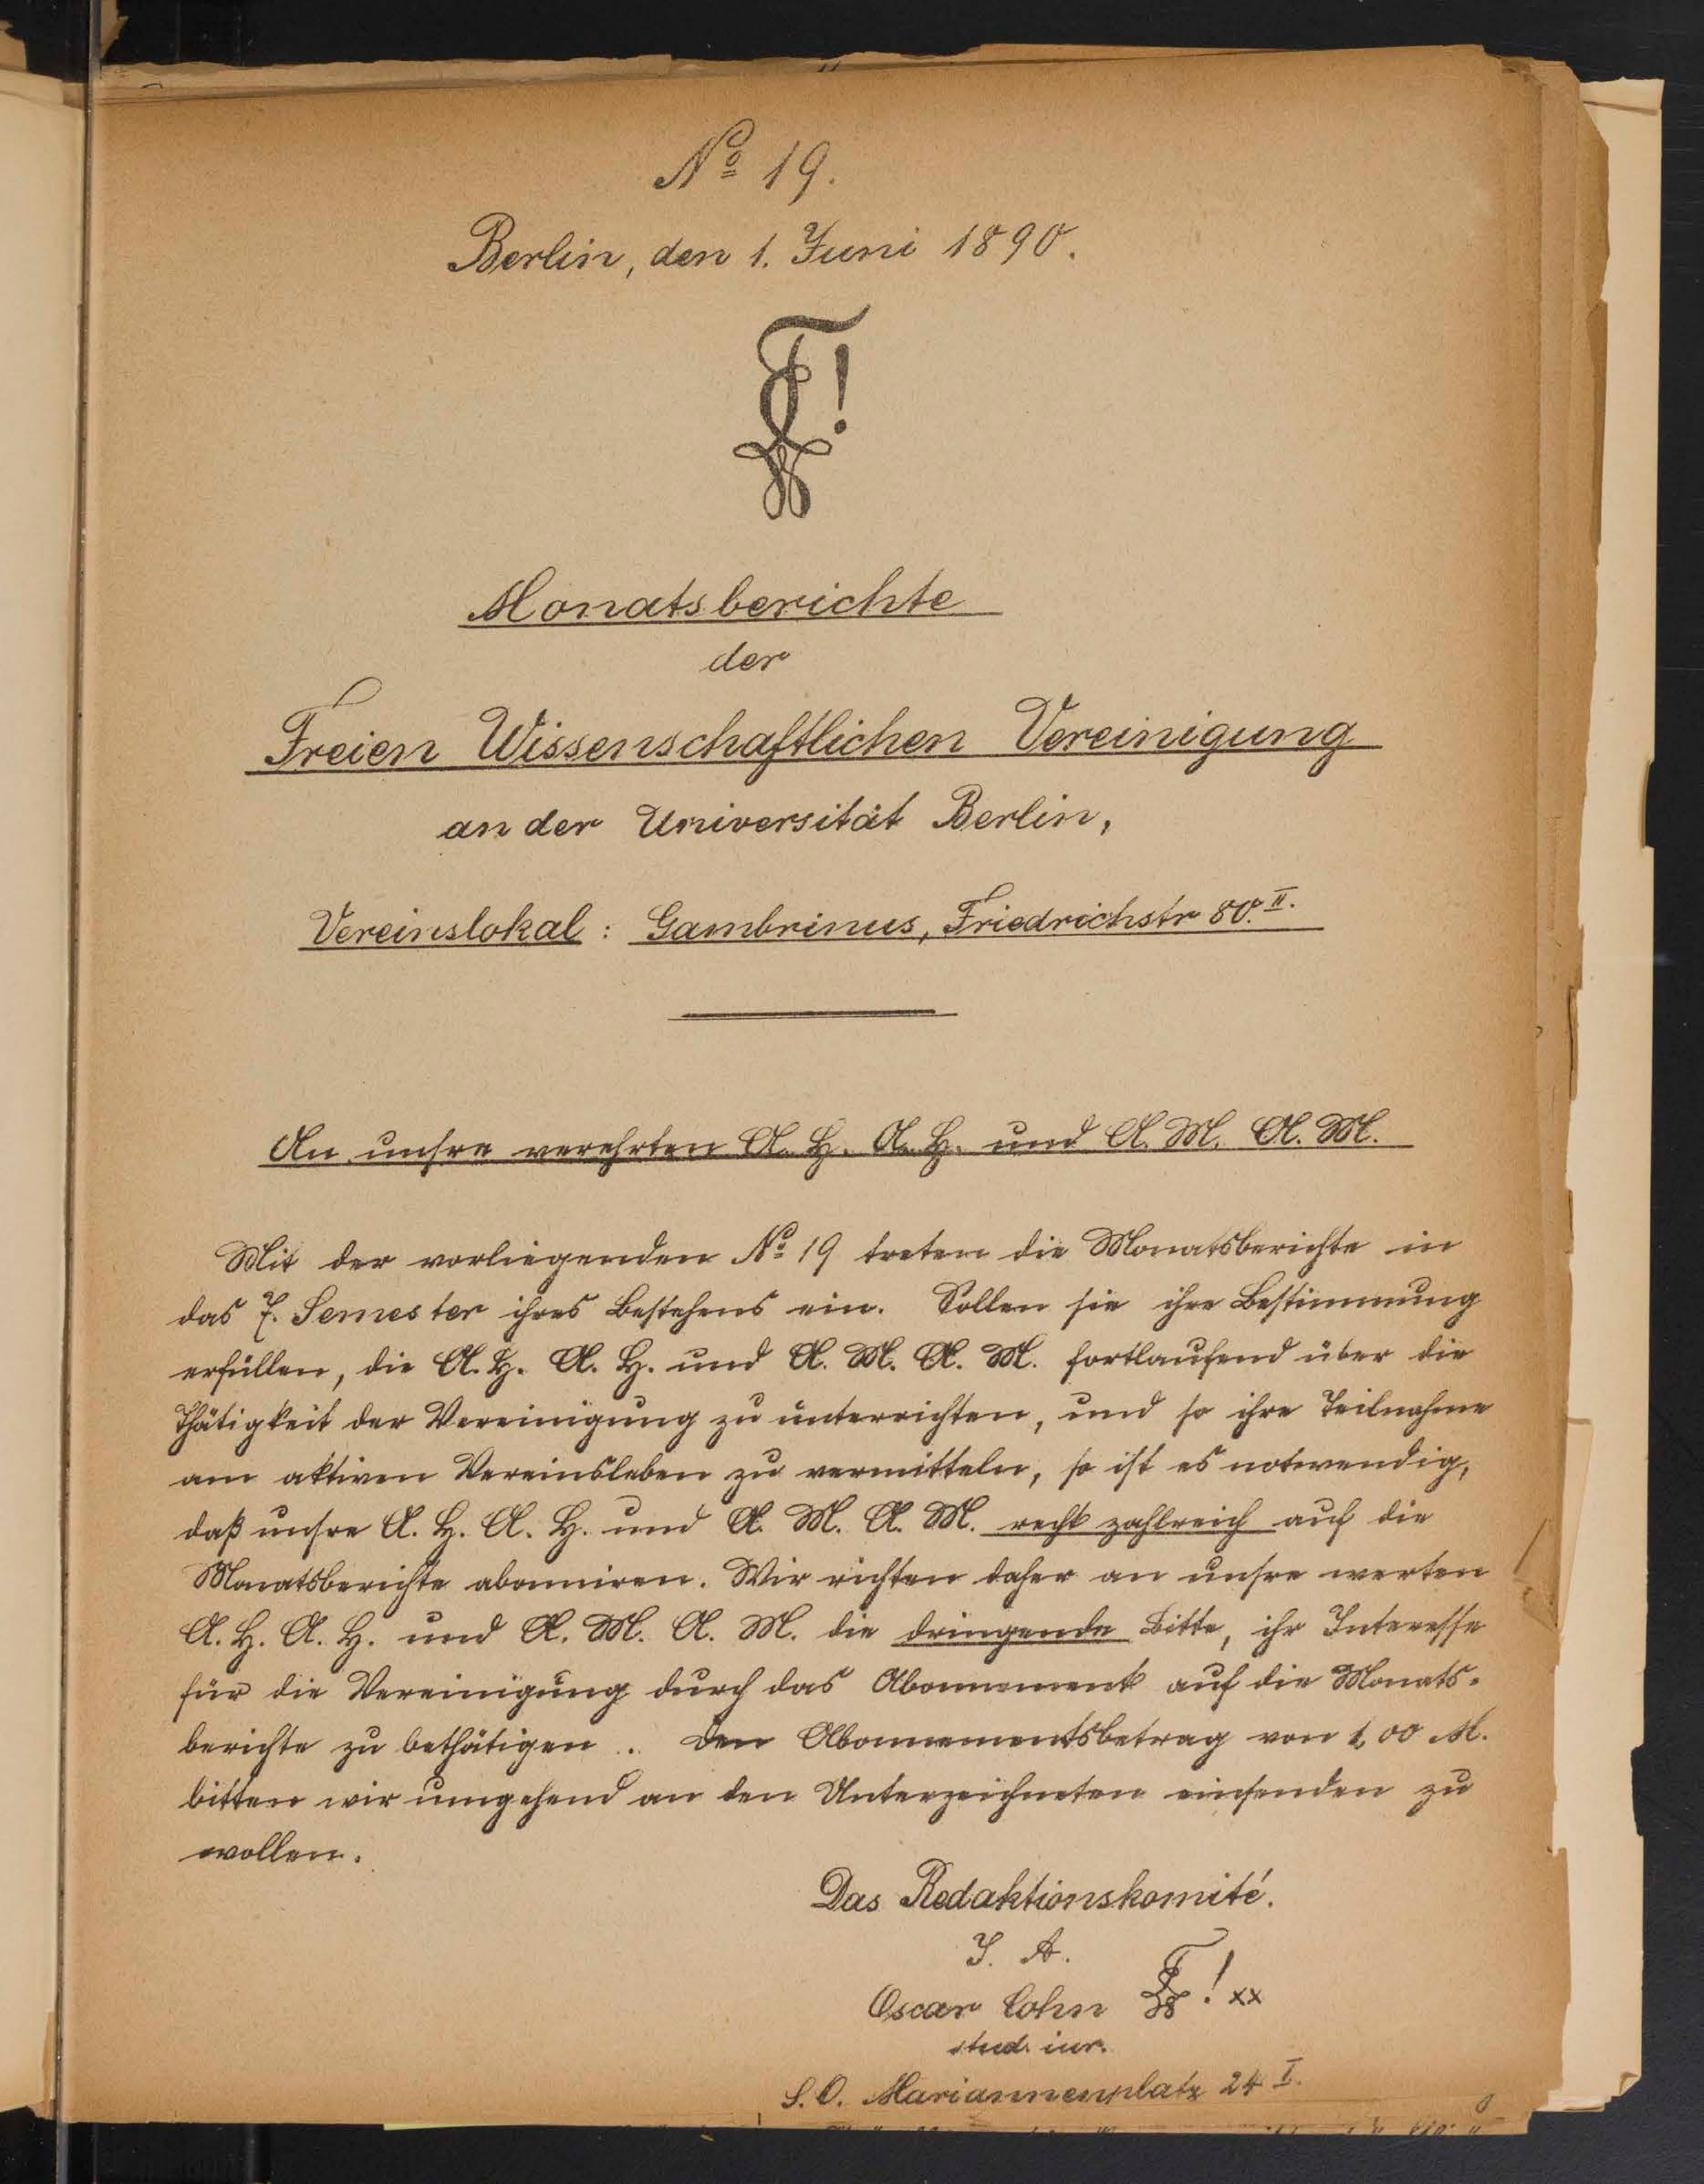 Nº 19.
Berlin, den 1. Juni 1890.
Monatsberichte
der
Freien Wissenschaftlichen Vereinigung
an der Universität Berlin,
Vereinslokal: Gambrinus, Friedrichstr 80. II.
An unsre verehrten A. H. A. H. und A. M. A. M.
Mit der vorliegenden Nº 19 treten die Monatsberichte in
das 7. Semester ihres Bestehens ein. Sollen sie ihre Bestimmung
erfüllen, die A. H. A. H. und A. M. A. M. fortlaufend über die
Thätigkeit der Vereinigung zu unterrichten, und so ihre Teilnahme
am aktiven Vereinsleben zu vermitteln, so ist es notwendig,
daß unsre A. H. A. H. und A. M. A. M. recht zahlreich auf die
Monatsberichte abonniren. Wir richten daher an unsre werten
A. H. A. H. und A. M. A. M. die dringende Bitte, ihr Interesse
für die Vereinigung durch das Abonnement auf die Monats-
berichte zu bethätigen. Den Abonnementsbetrag von 1,00 M.
bitten wir umgehend an den Unterzeichneten einsenden zu
wollen.
Das Redaktionskomité.
I. A.
Oscar Cohn ! xx
stud. iur.
S. O. Mariannenplatz 24 I.